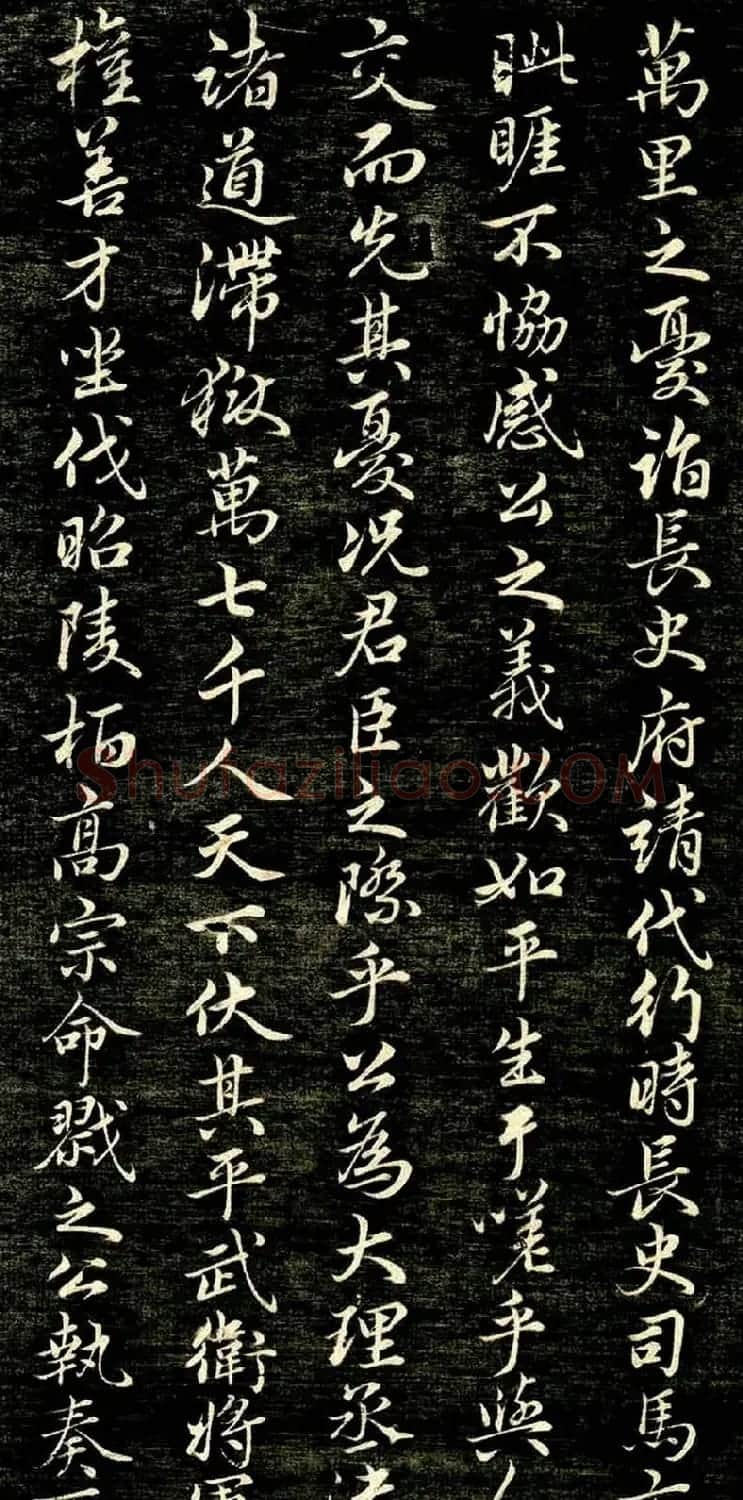 萬里之憂詣長史府請代行時長史司馬
眦睚不恊感公之義歡如平生于嗟乎與人
交而先其憂况君臣之際乎公為大理丞決
諸道滯獄萬七千人天下伏其平武衛將軍
權善才坐伐昭陵栢高宗命戮之公執奏
Shufaziliao.COM